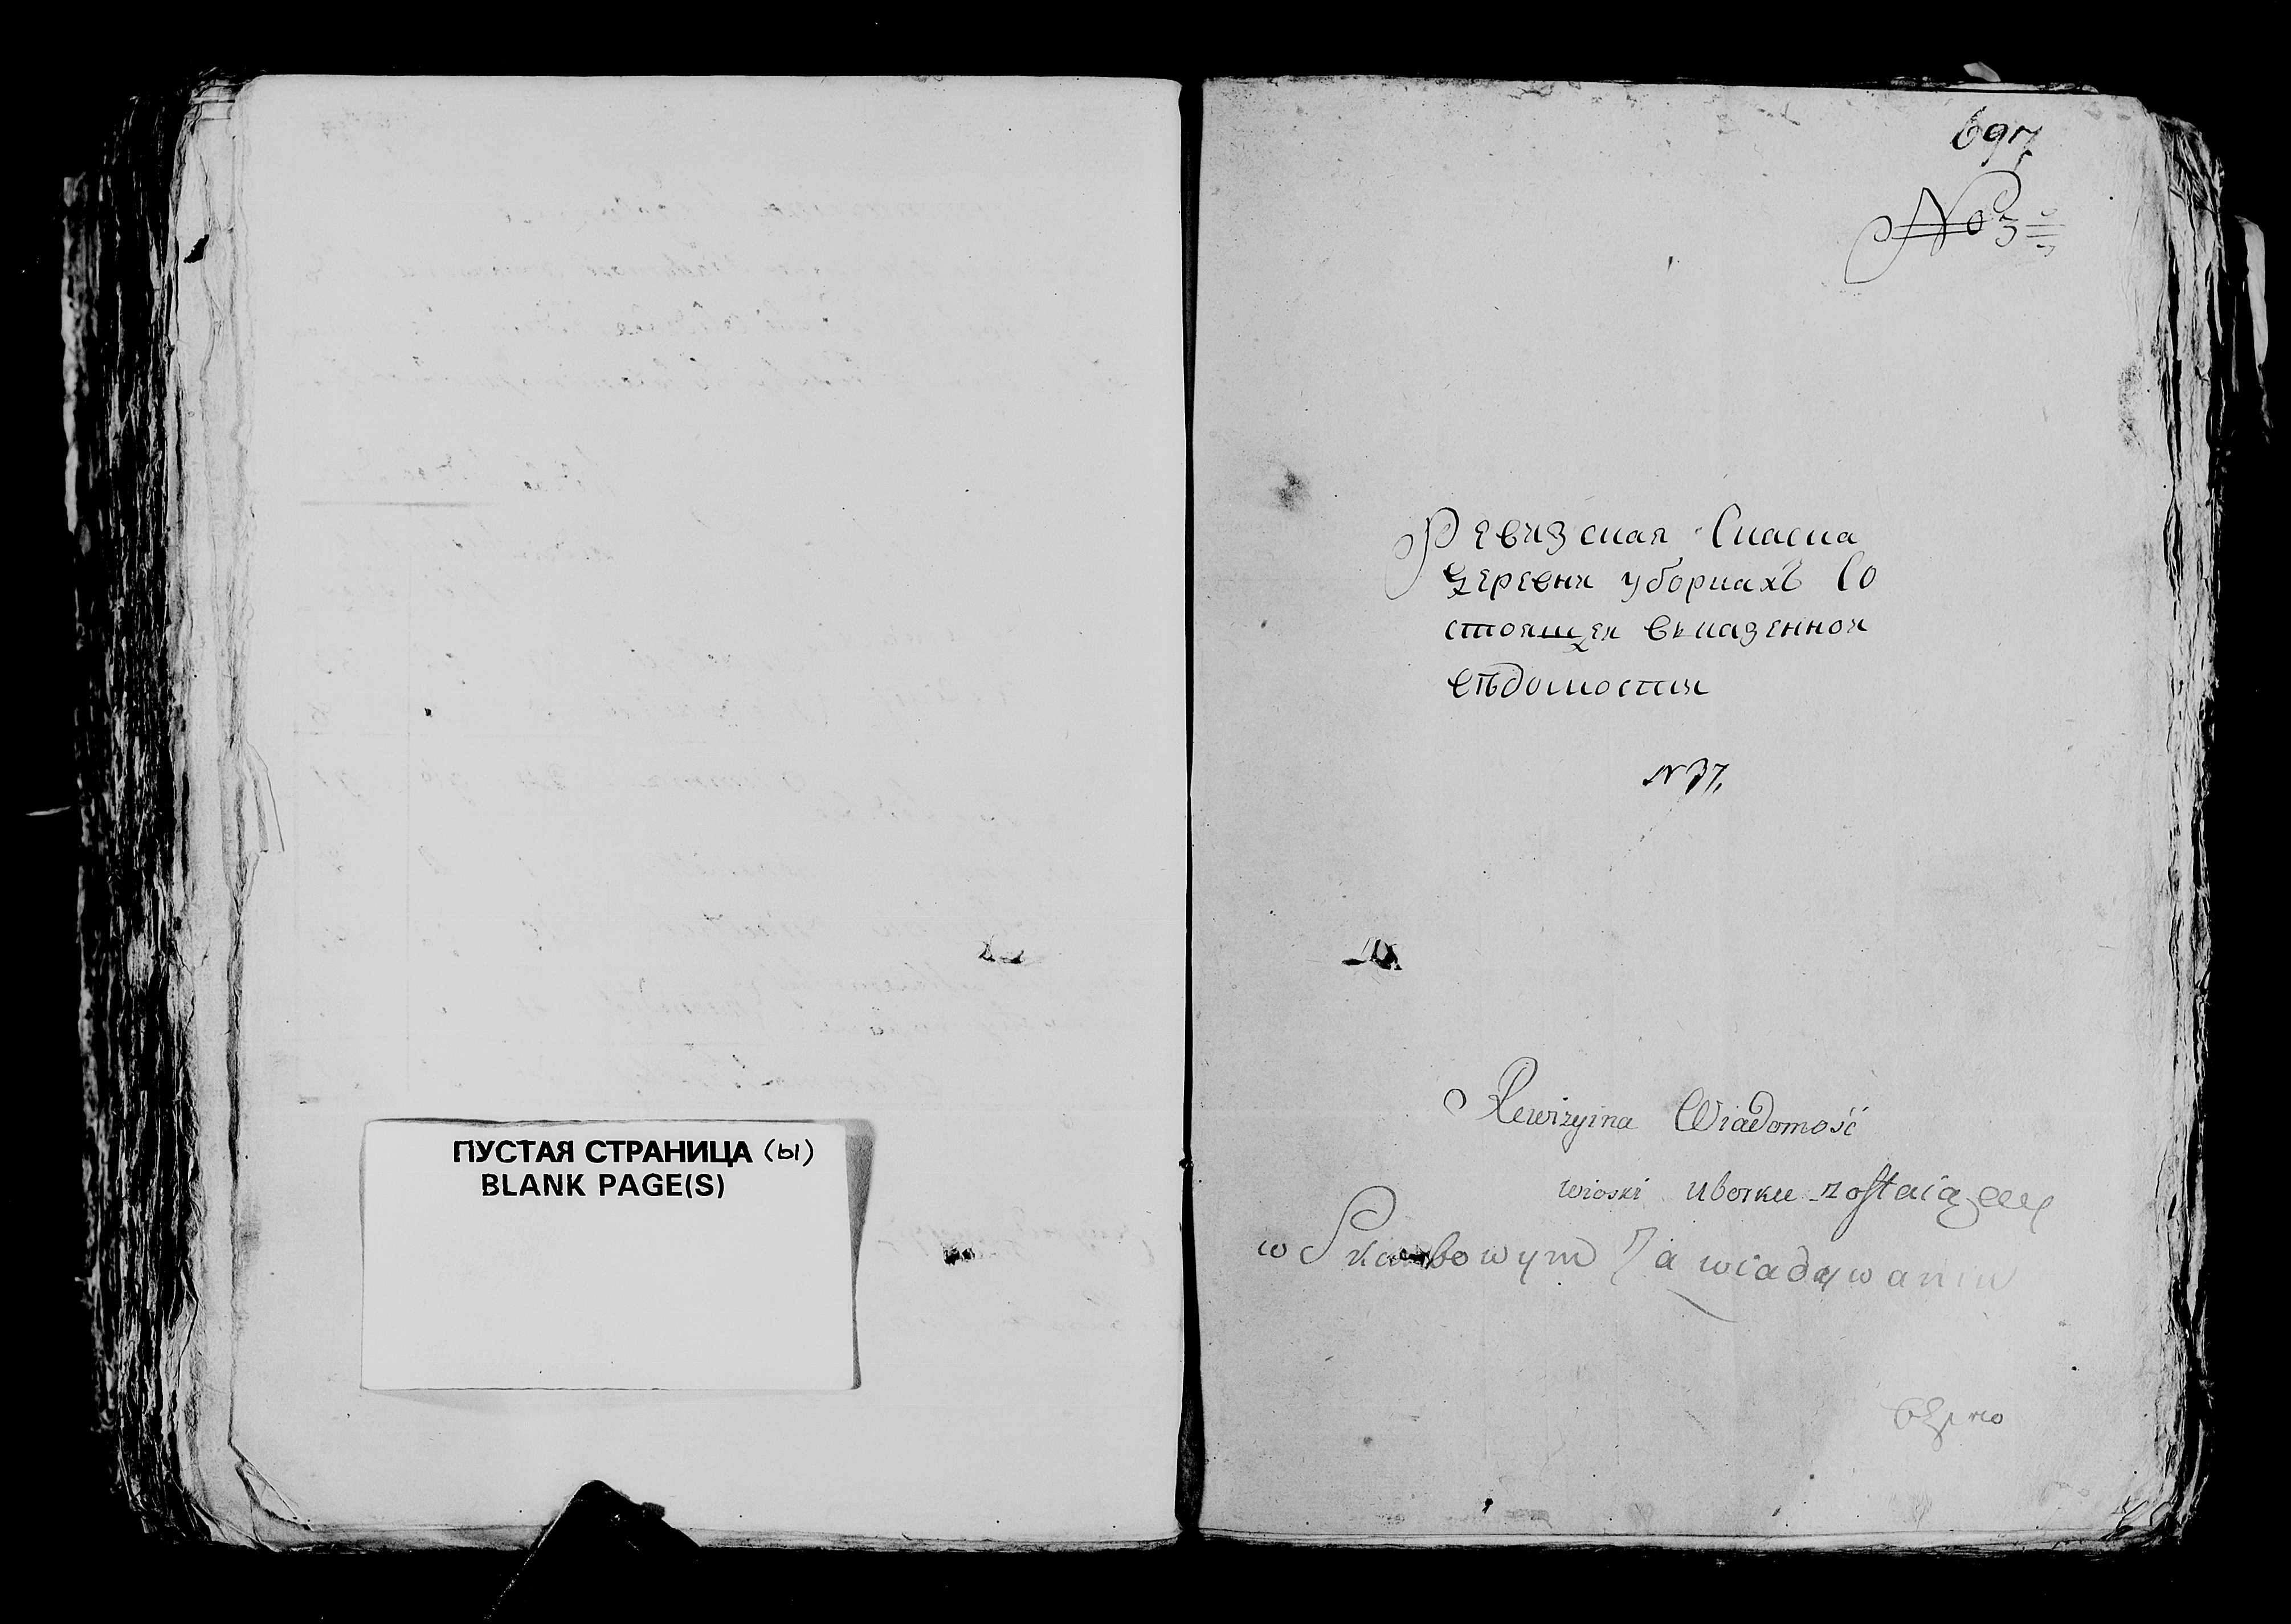 ПУСТАЯ СТРАНИЦА (ы)
BLANK PAGE(S)
697
№ 3
Ревизская Скаска
Деревни уборкахъ Со
стоящея вказенной
вѣдомости
N 37,
Rewizyina Wiadomość
wioski uborku zostaiącey
w Skarbowym Zawiadywaniu